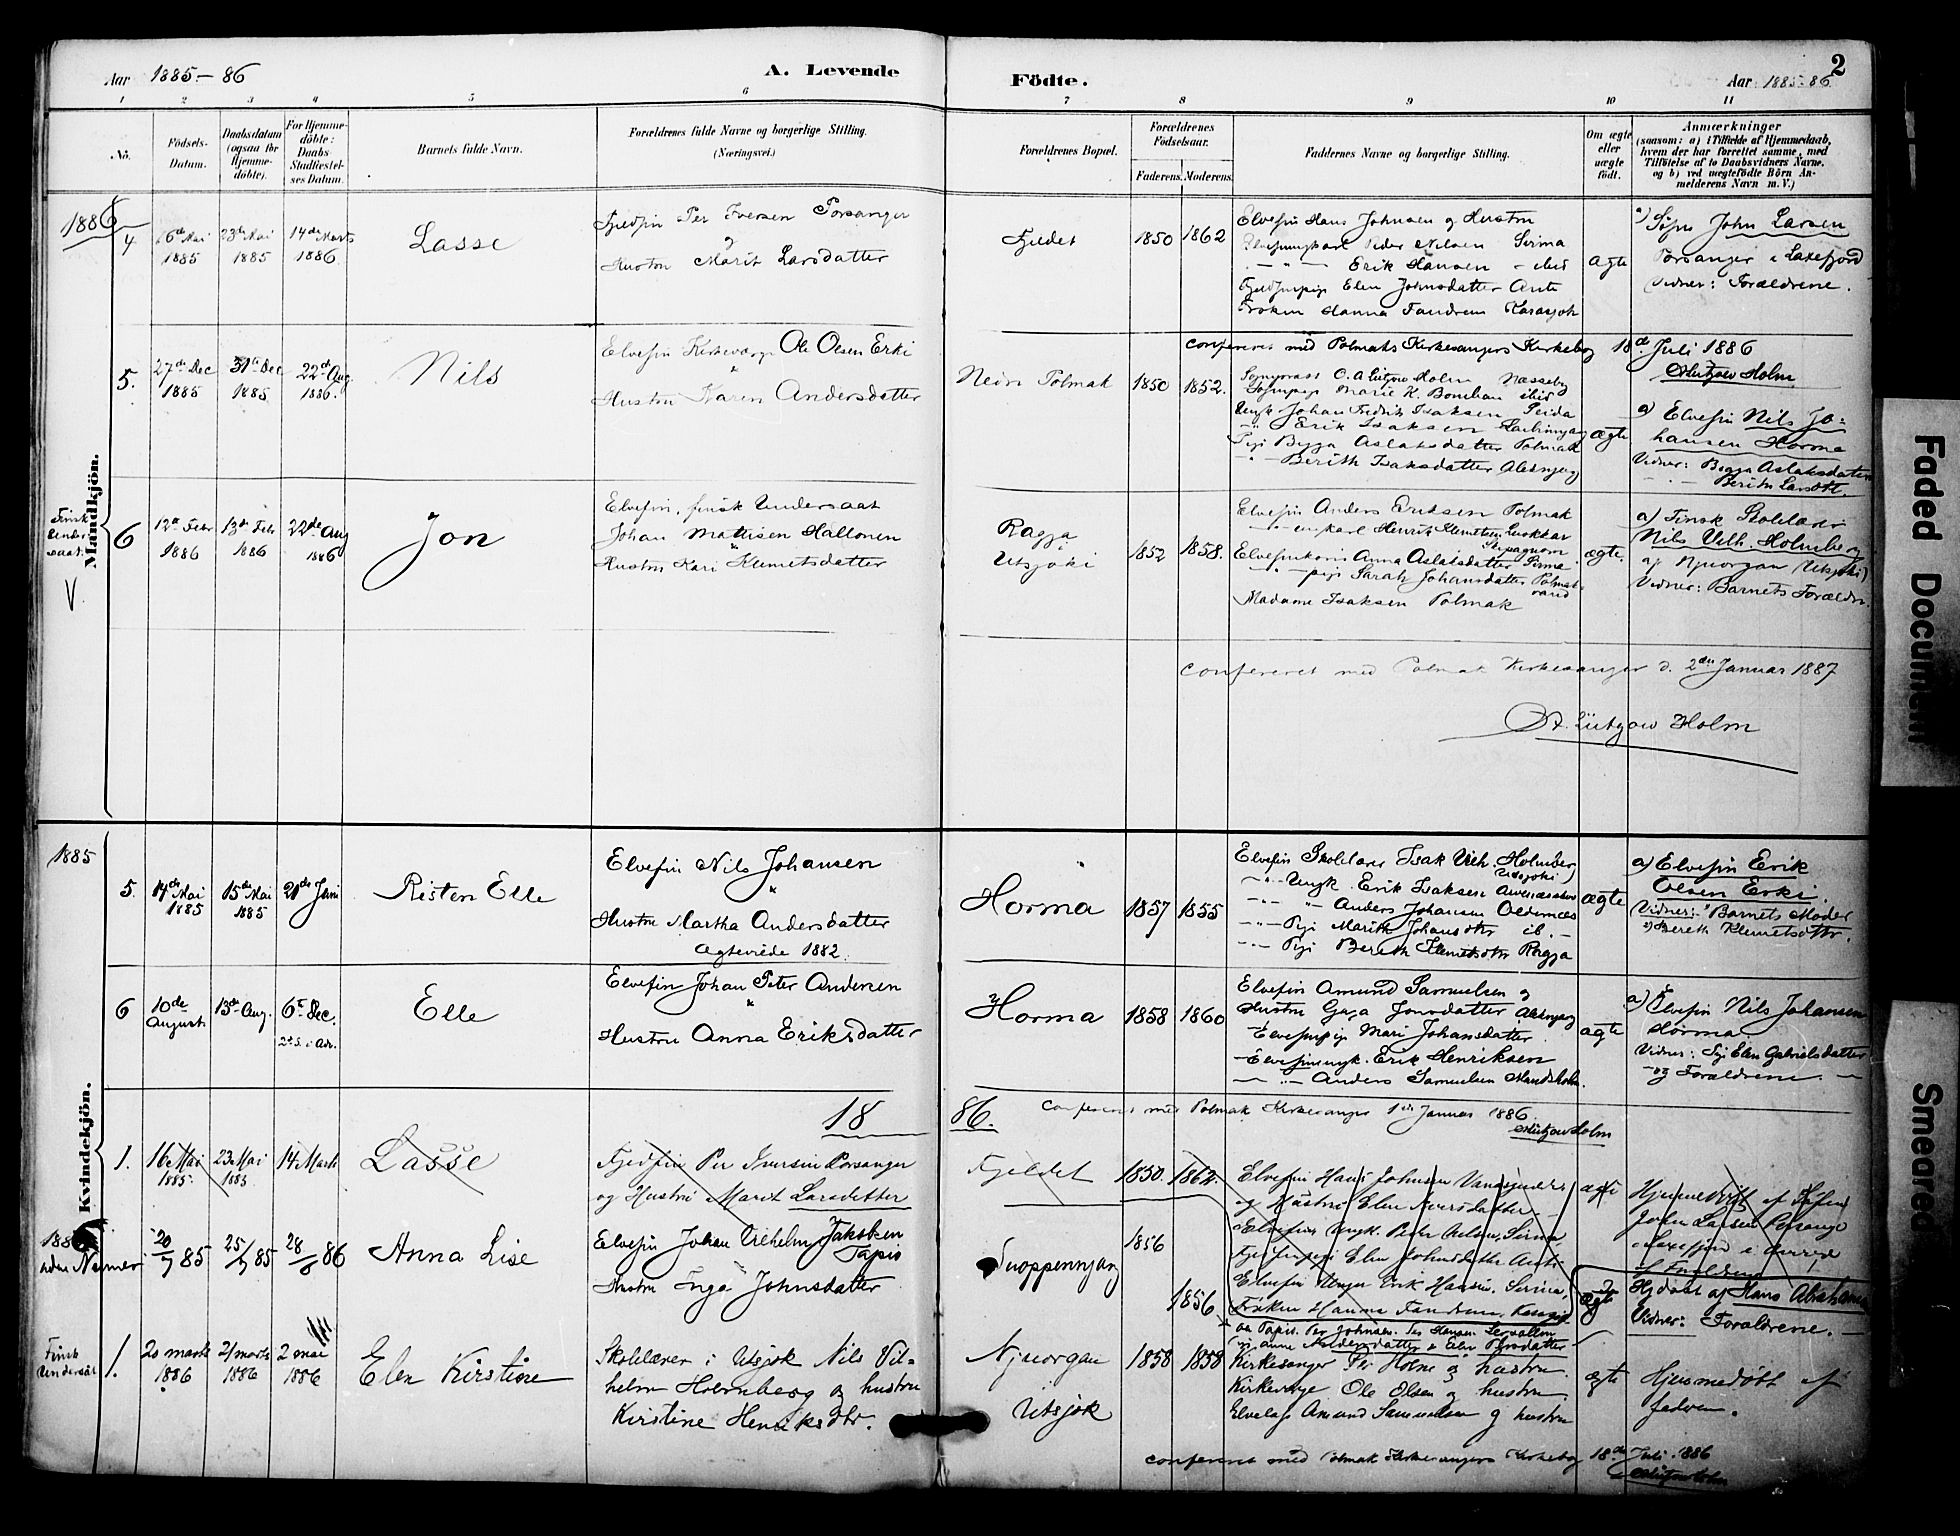 Aar 1885-86
A. Levende
Fødte.
Aar 1885-86
2
1 2 3 4 5 6 7 8 9 10 11
No.
Fødsels-
Datum.
Daabsdatum
(ogsaa for
Hjemme-
døbte).
For Hjemme-
døbte:
Daabs-
Stadfæstel-
ses Datum.
Barnets fulde Navn.
Forældrenes fulde Navne og borgerlige Stilling.
(Næringsvei.)
Forældrenes Bopæl.
Forældrenes
Fødselsaar.
Faderens. Moderens.
Faddernes Navne og borgerlige Stilling.
Om ægte
eller
uægte
født.
Anmærkninger
(saasom: a) i Tilfælde af Hjemmedaab,
hvem der har forrettet samme, med
Tilføielse af to Daabsvidners Navne,
og b) ved uægtefødte Børn An-
melderens Navn m. V.)
Mandkjön.
1886
4
16de Mai
1885
23de Mai
1885
14de Marts
1886
Lasse
Fjeldfin Per Iversen Porsanger
Hustru Marit Larsdatter
Fjeldet
1850
1862
Elvefin Hans Johnsen og Hustru
Peder Nilsen Sirma
Erik Hansen
Elen Johnsdatter
Frøken Hanna Fandrem Karasjok
ægte
a) John Larsen
Porsanger i Laxefjord
Vidner: Forældrene.
Confereret med Polmaks Kirkesangers Kirkebog 18de Juli 1886
Lützow Holm
5.
27de Dec
1885
31te Dec
1885
22de Aug
1886.
Nils
Elvefin Kirkeværge Ole Olsen Erki
Hustru Karen Andersdatter
Nedre Polmak
1850
1852.
Sognepræst O. A. Lützow Holm Næsseby
Marie K. Bomhau ibid
Ungk Johan Fredrik Isaksen Seida
Erik Isaksen
Pige Bigga Aslaksdatter Polmak
Berith Isaksdatter
ægte
a) Elvefin Nils Jo-
hansen Horma
Vidner: Bigga Aslaksdatter
Berith
Finsk
Under-
saat.
V.
6
12te Febr
1886
13de Febr
1886
22de Aug
1886
Jon
Elvefin, finsk Undersaat
Johan Mathisen Hallonen
Hustru Kari Klemetsdatter
Ragja
i
Utsjoki
1852
1858.
Elvefin Anders Eriksen Polmak
Henrik Klemetsen
Elvefinkone Anna Aslaksdatter Sirma
pige Sarah Johansdatter Polmak-
vand
Madame Isaksen Polmak
ægte.
a) Finsk Skolelærer
Nils Vilh. Holmberg
af Njuorgan (Utsjoki)
Vidner: Barnets Forældre.
Confereret med Polmak Kirkesanger d. 2den Januar 1887
O. A. Lützow Holm
Kvindekjön.
1885
5.
14de Mai
1885
15de Mai
1885
21de Juni
Risten Elle
Elvefin Nils Johansen
Hustru Martha Andersdatter
Ægteviede 1882.
Horma
1857
1855
Elvefin Skolelærer Isak Vilh. Holmber
Utsjoki
Ungk. Erik Isaksen
Anders Johansen
Pige Marith Johansdtr ib.
Pige Berith Klemetsdtr Ragja
ægte
a) Elvefin Erik
Olsen Erki.
Vidner: 1) Barnets Moder
2) Bereth Klemetsdtr.
6
10de
August
13de Aug.
6te Dec.
2de S. i Adv.
Elle
Elvefin Johan Peter Andersen
Hustru Anna Eriksdatter
Horma
1858
1860
Elvefin Amund Samuelsen og
Hustru Gaga Jonsdatter
Elvefinpige Mari Johansdatter
Elvefinungk. Erik Henriksen
Anders Samuelsen
ægte
a) Elvefin Nils Johansen
Horma
Vidner: Pige Elen Gabrielsdatter
og Forældrene.
1886.
Confereret med Polmak Kirkesanger 1ste Januar 1886.
Lützow Holm
1.
16 Mai
1885.
23 Mai
1885
14 Marts
Lasse
Fjeldfin Per Iversen Porsanger
og Hustru Marit Larsdatter
Fjeldet
1850.
1862.
Elvefin Hans Johnsen
og Hustru Elen
Elvefin Ungk. Peder Nilsen, Sirma
Elen Johnsdatter
Elvefin Ungk Erik Hansen, Sirma,
Frøken Hanna Fandrem,
ægte
Hjemmedøbt af
John Larsen Porsanger
Laxefjord
1885
uden Nummer
20/7 85
25/7 85
28/6 86
Anna Lise
Elvefin Johan Vilhelm Jakobsen
Tapio
Hustru Inga Johnsdatter
1856
1856
Per Johnsen. Per Hansen
ægte
Hjdøbt af Hans Abraham
Vidner: Forældrene.
Finsk
Undersåt
1.
20 marts
1886
21 marts
1886
2 mai
1886
Elen Kirstine
Skolelærer i Utsjok Nils Vil-
helm Holmberg og hustru
Kirstine Henriksdtr.
Njuorgan
Utsjok
1858
1858
Kirkesanger Per Holme og hustru
Kirkeverge Ole Olsen og hustru
Amund Samuelsen og hustru
ægte
Hjemmedøbt af
faderen.
Confereret med Polmak Kirkesangers Kirkebog 18de Juli 1886
Lützow Holm
Faded Document
Smeared